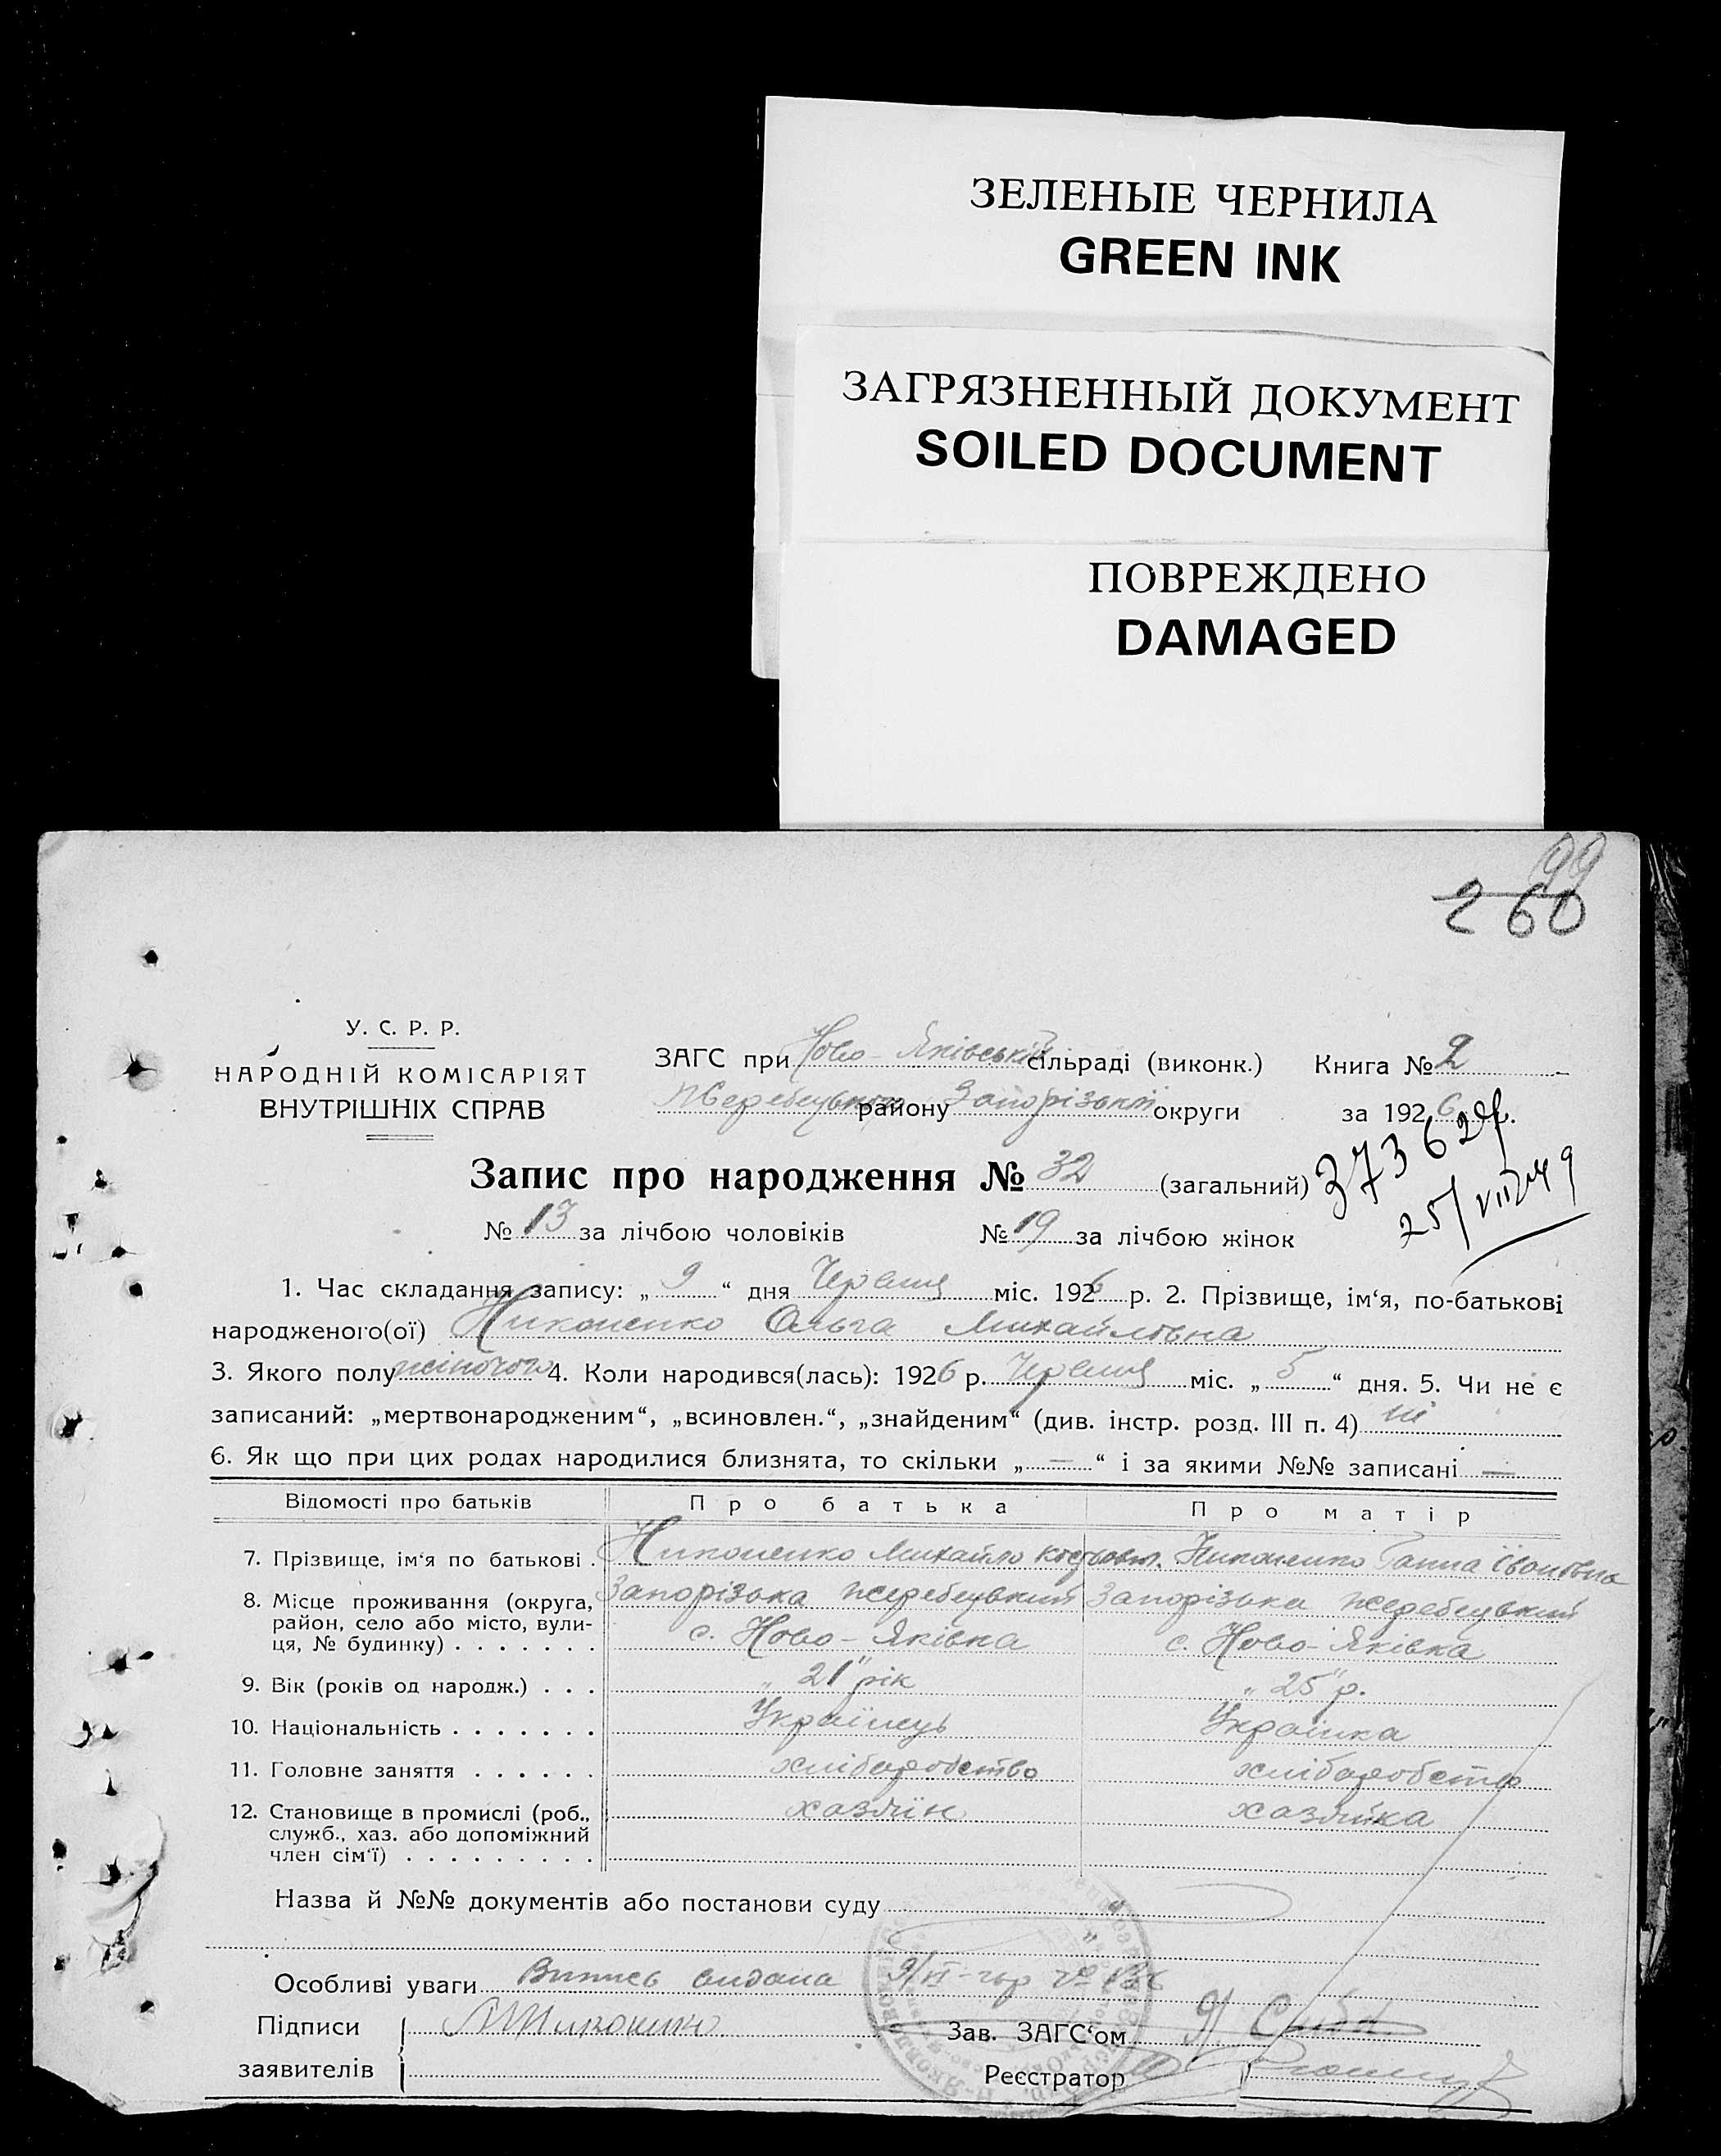 ЗЕЛЕНЫЕ ЧЕРНИЛА
GREEN INK
ЗАГРЯЗНЕННЫЙ ДОКУМЕНТ
SOILED DOCUMENT
ПОВРЕЖДЕНО
DAMAGED
99
260
У. С. Р. Р.
НАРОДНІЙ КОМІСАРІЯТ
ВНУТРІШНІХ СПРАВ
ЗАГС при Ново-Яківській сільраді (виконк.) Книга № 2
Жеребецького району Запорізької округи за 1926 р.
Запис про народження № 32 (загальний)
37362
25/VII 49
№ 13 за лічбою чоловіків № 19 за лічбою жінок
1. Час складання запису: „ 9 “ дня Червня міс. 1926 р. 2. Прізвище, ім‘я, по-батькові
народженого(ої) Никоненко Ольга Михайловна
3. Якого полу жіночого 4. Коли народився(лась): 1926 р. Червня міс. „ 5 “ дня. 5. Чи не є
записаний: „мертвонародженим“, „всиновлен.“, „знайденим“ (див. інстр. розд. III п. 4) ні
6. Як що при цих родах народилися близнята, то скільки „ — “ і за якими №№ записані —
Відомості про батьків Про батька Про матір
7. Прізвище, ім‘я по батькові . Никоненко Михайло Никоненко Ганна Івановна
8. Місце проживання (округа, Запорізька Жеребецький Запорізька Жеребецький
район, село або місто, вули-
ця, № будинку) . . . . . . . с. Ново-Яківка с. Ново-Яківка
9. Вік (років од народж.) . . . „ 21 " рік „ 25 " р.
10. Національність . . . . . . . Українець Українка
11. Головне заняття . . . . . . хліборобство хліборобство
12. Становище в промислі (роб., хазяїн хазяйка
служб., хаз. або допоміжний
член сім‘ї) . . . . . . . . .
Назва й №№ документів або постанови суду
Особливі уваги Випись видана 9/VI
Підписи
заявителів
Зав. ЗАГС‘ом
Реєстратор